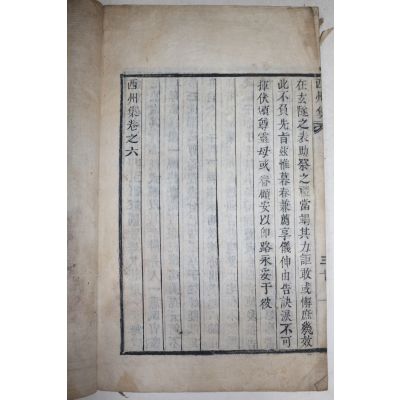 西州集
在玄隧之表助祭之禮當竭其力詎敢或懈庶幾效
此不負先旨玆惟暮春兼薦享儀伸由告訣淚不可
揮伏願尊靈毋或眷顧安以卽路永妥于彼
西州集卷之六